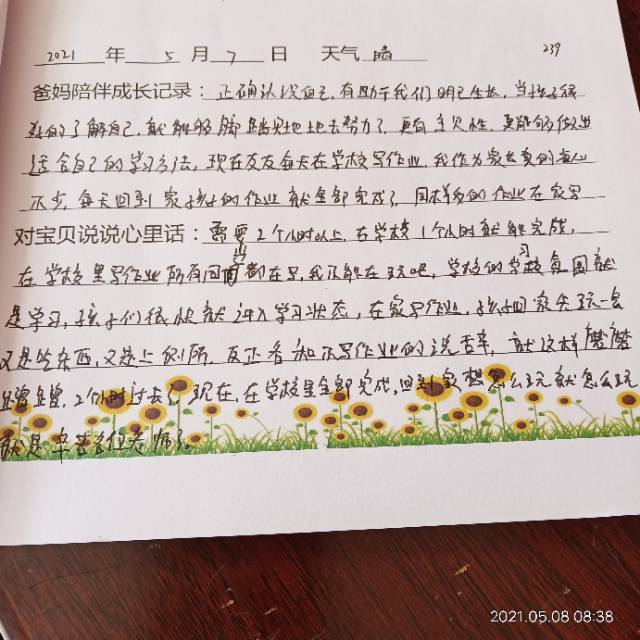 2021 年 5 月 7 日 天气 晴 239
爸妈陪伴成长记录：正确认识自己，有助于我们明己生长，当孩子很
好的了解自己，就能够脚踏实地地去努力了，更有主见性，更能够做出
适合自己的学习方法。现在友友每天在学校写作业，我作为家长真的省心
不少，每天回到家孩子的作业就全部完成了，同样多的作业在家写
对宝贝说说心里话：需要2个小时以上，在学校1个小时就能完成。
在学校里写作业所有同学都在写，我不能在玩吧，学校的学习氛围就
是学习，孩子们很快就进入学习状态，在家写作业，孩子回家先玩一会
又是吃东西，又是上厕所，反正各种不写作业的 辛，就这样磨磨
蹭蹭，2个小时过去了，现在，在学校里全部完成，回到家想怎么玩就怎么玩
就是辛苦各位老师了。
2021.05.08 08:38